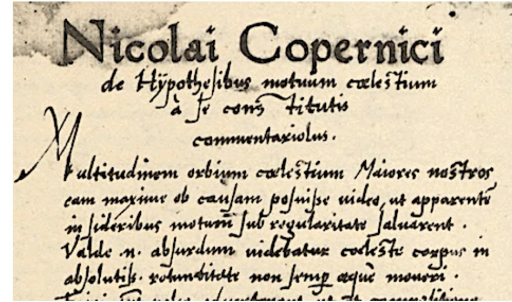 Nicolai Copernici
de Hypothesibus motuum cœlestium
à se constitutis
commentariolus.
Multitudinem orbium cœlestium Maiores nostros
eam maxime ob causam posuisse video, ut apparentē
in sideribus motum̄ sub regularitate salvarent.
Valde .n. absurdum videbatur cœleste corpus in
absolutiss. rotunditate non semp æque moveri.